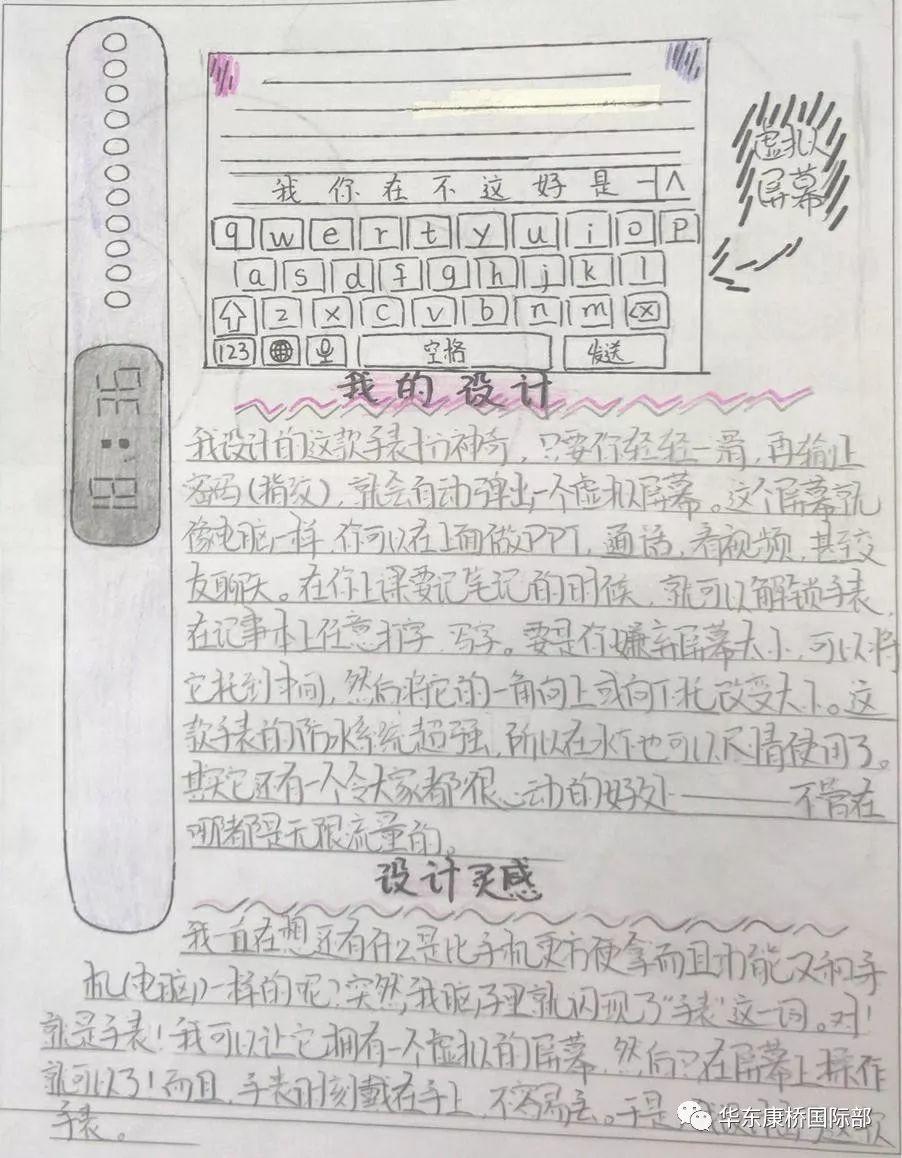 我 你 在 不 这 好 是 一 ∧
q w e r t y u i o p
a s d f g h j k l
z x c v b n m
123 空格 发送
虚拟
屏幕
我的设计
我设计的这款手表十分神奇，只要你轻轻一滑，再输上
密码(指纹)，就会自动弹出一个虚拟屏幕。这个屏幕就
像电脑一样，你可以在上面做PPT，通话，看视频，甚至交
友聊天。在你上课要记笔记的时候，就可以解锁手表，
在记事本上任意打字，写字。要是你嫌弃屏幕太小，可以将
它托到中间，然后将它的一角向上或向下托改变大小。这
款手表的防水系统超强，所以在水下也可以尽情使用了。
其实它还有一个令大家都很心动的好处——不管在
哪都是无限流量的。
设计灵感
我一直在想还有什么是比手机更方便拿而且功能又和手
机(电脑)一样的呢？突然，我脑子里就闪现了“手表”这一词。对！
就是手表！我可以让它拥有一个虚拟的屏幕，然后只在屏幕上操作
就可以了！而且，手表时刻戴在手上，不容易丢。于是，我
手表。
华东康桥国际部